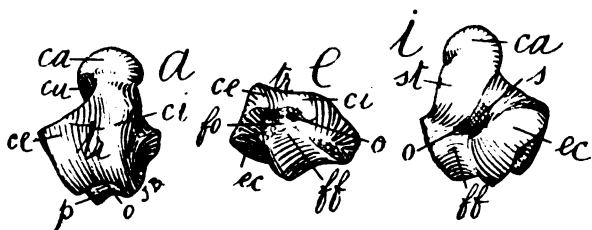 a
ca
cu
ci
ce
tr
p
o
sa
e
ce
tr
ci
fo
o
ec
ff
i
ca
st
s
o
ec
ff